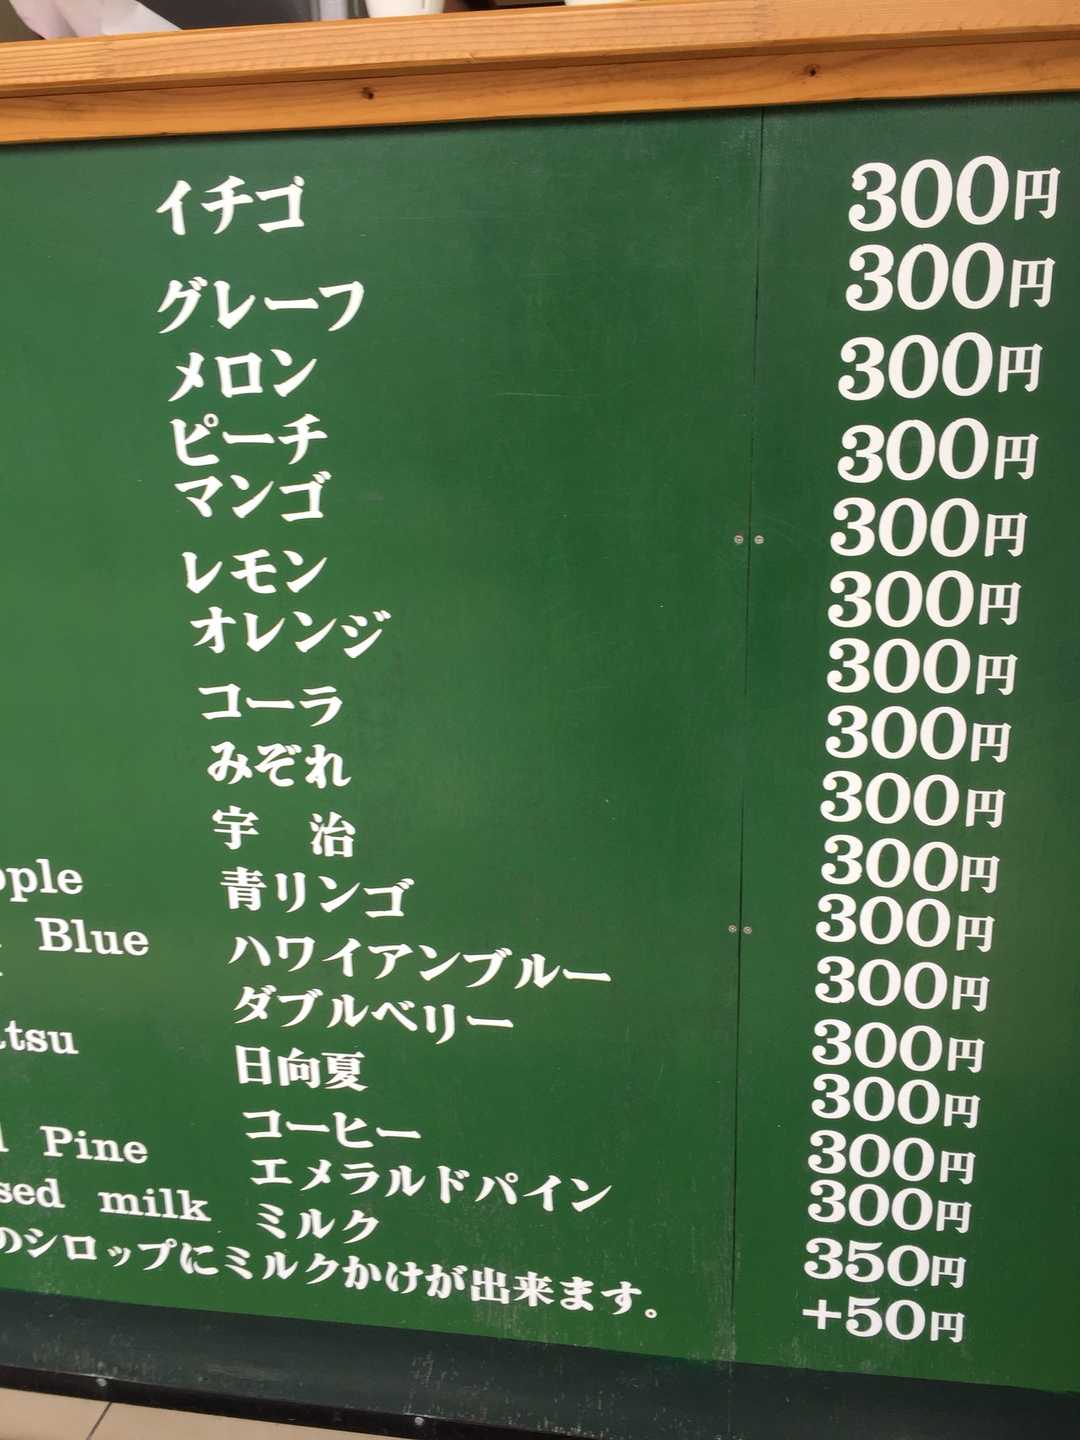 イチゴ 300円
グレープ 300円
メロン 300円
ピーチ 300円
マンゴ 300円
レモン 300円
オレンジ 300円
コーラ 300円
みぞれ 300円
宇治 300円
青リンゴ 300円
Blue ハワイアンブルー 300円
ダブルベリー 300円
日向夏 300円
コーヒー 300円
Pine エメラルドパイン 300円
milk ミルク 350円
のシロップにミルクかけが出来ます。 +50円